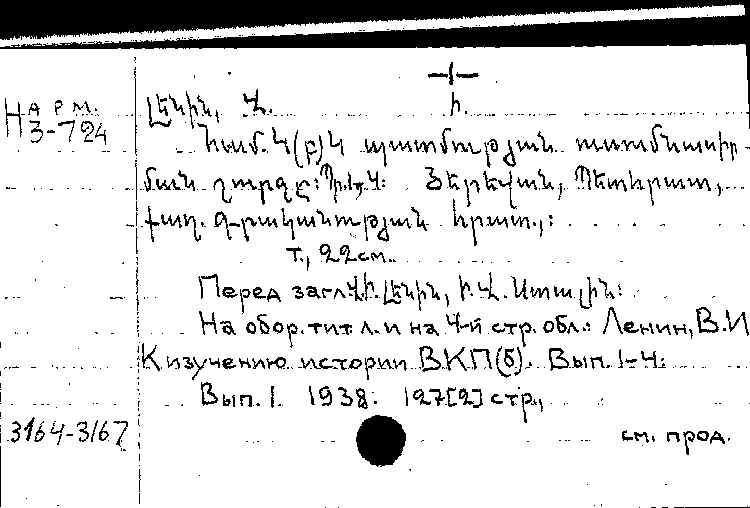 На арм.
3-724
Լենին, Վ. Ի.
Համ.Կ(բ)Կ պատմության ուսումնասիր
ման շարքը: Պր.1-4: Յերեվան, Պետհրատ,
քաղ. գրականության հրատ.,:
т., 22см.
Перед загл. Վ.Ի. Լենին, Ի.Վ. Ստալին:
На обор. тит л. и на 4-й стр. обл.: Ленин, В.И
К изучению истории ВКП(б). Вып. 1-4.
Вып. 1 1938. 127[2] стр.,
3164-3167
см. прод.